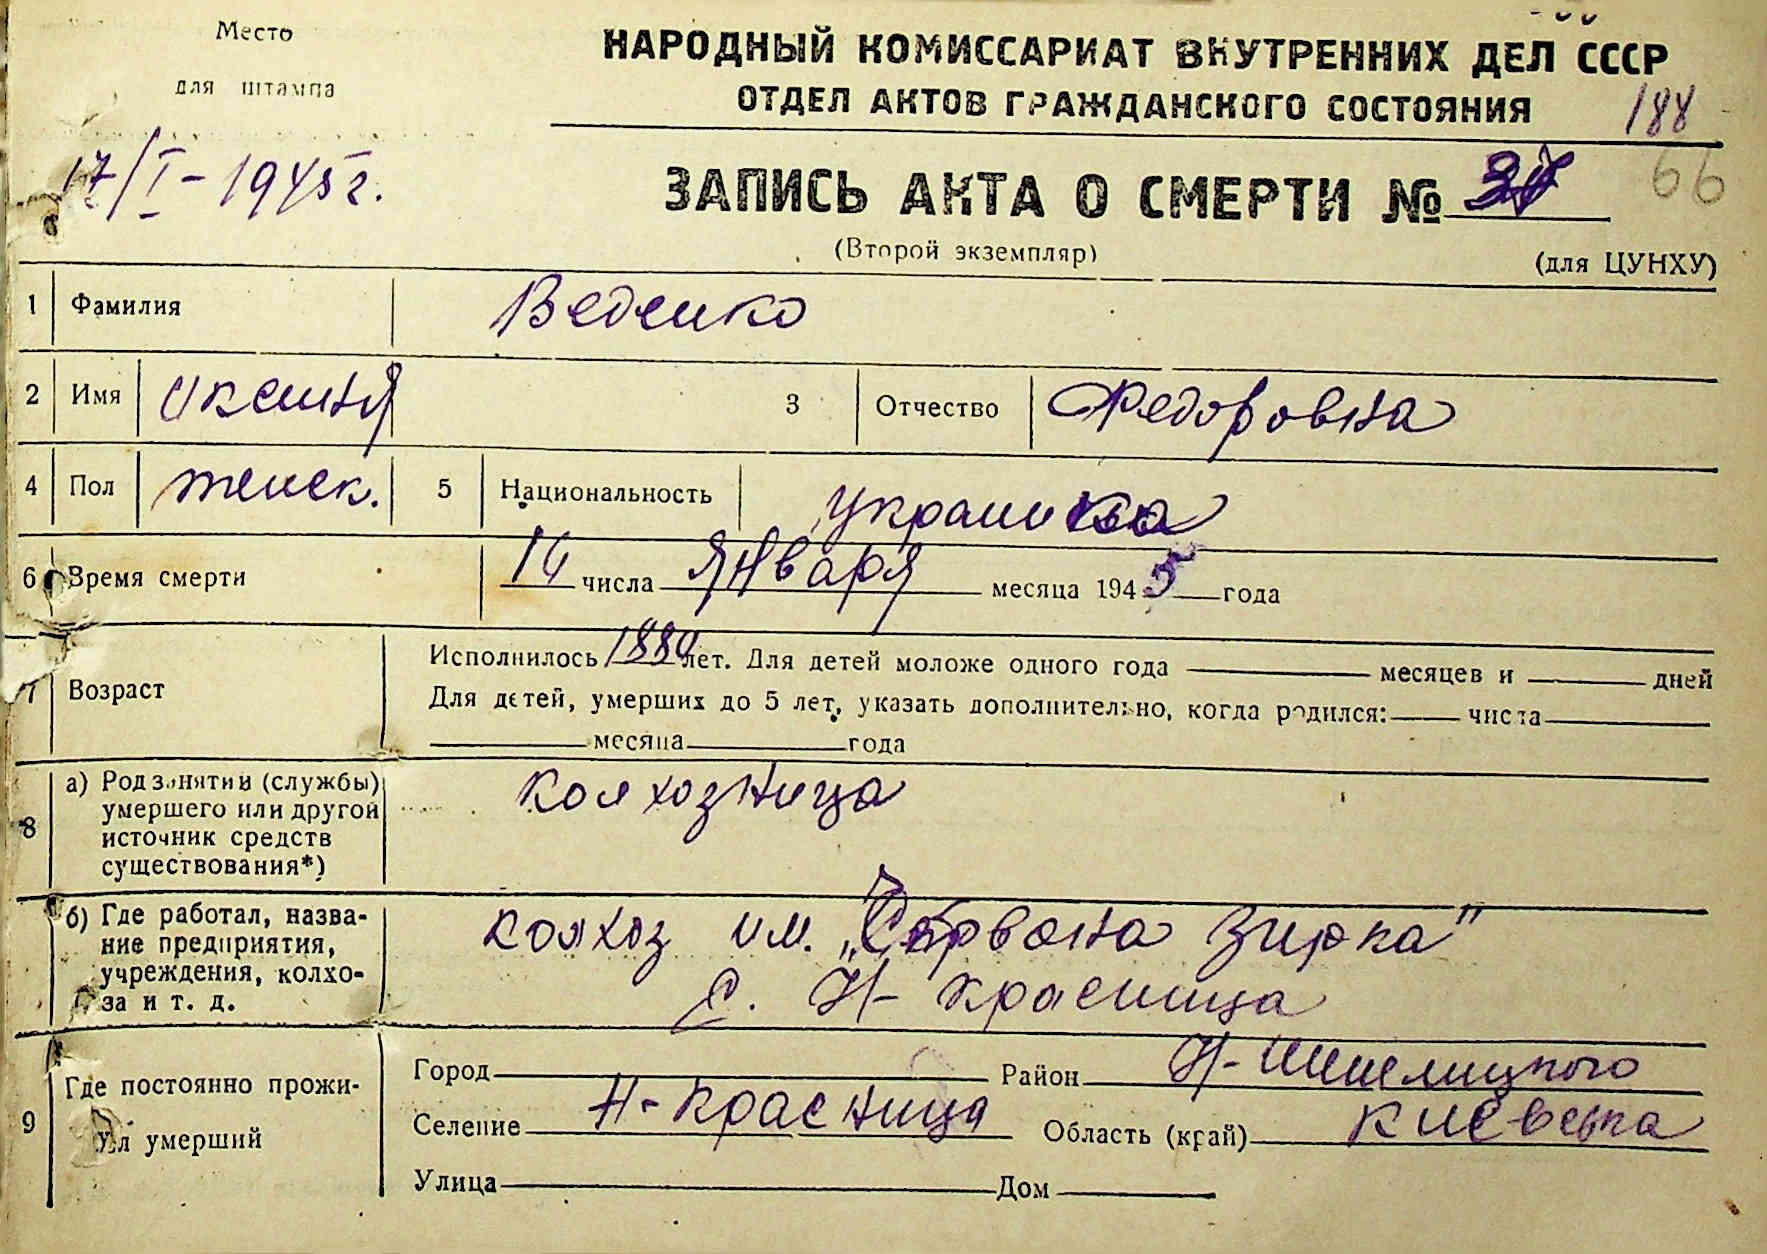 Место
для штампа
НАРОДНЫЙ КОМИССАРИАТ ВНУТРЕННИХ ДЕЛ СССР
ОТДЕЛ АКТОВ ГРАЖДАНСКОГО СОСТОЯНИЯ
188
17/I-1945 г.
ЗАПИСЬ АКТА О СМЕРТИ №
66
(Второй экземпляр)
(для ЦУНХУ)
1 Фамилия Веденко
2 Имя Иксинья 3 Отчество Федоровна
4 Пол женск. 5 Национальность украинка
6 Время смерти 14 числа Января месяца 1945 года
7 Возраст
Исполнилось 1880 лет. Для детей моложе одного года месяцев и дней
Для детей, умерших до 5 лет, указать дополнительно, когда родился: числа
месяца года
8 а) Род занятий (службы) умершего или другой источник средств существования*)
колхозница
б) Где работал, название предприятия, учреждения, колхоза и т. д.
колхоз им. „Червона Зирка"
с. Н-Красница
9 Где постоянно проживал умерший
Город Район Н-Шепелицкого
Селение Н-Красница Область (край) Киевська
Улица Дом